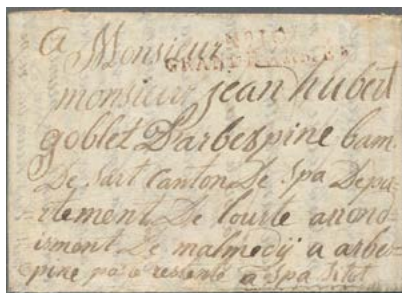 A Monsieur
No 10
GRANDE ARMÉE
monsieur jean hubert
goblet Darbespine bam
De Sart Canton De Spa Depa=
rtement De lourte arond=
ismont De malmedij a arbes=
pine a Spa